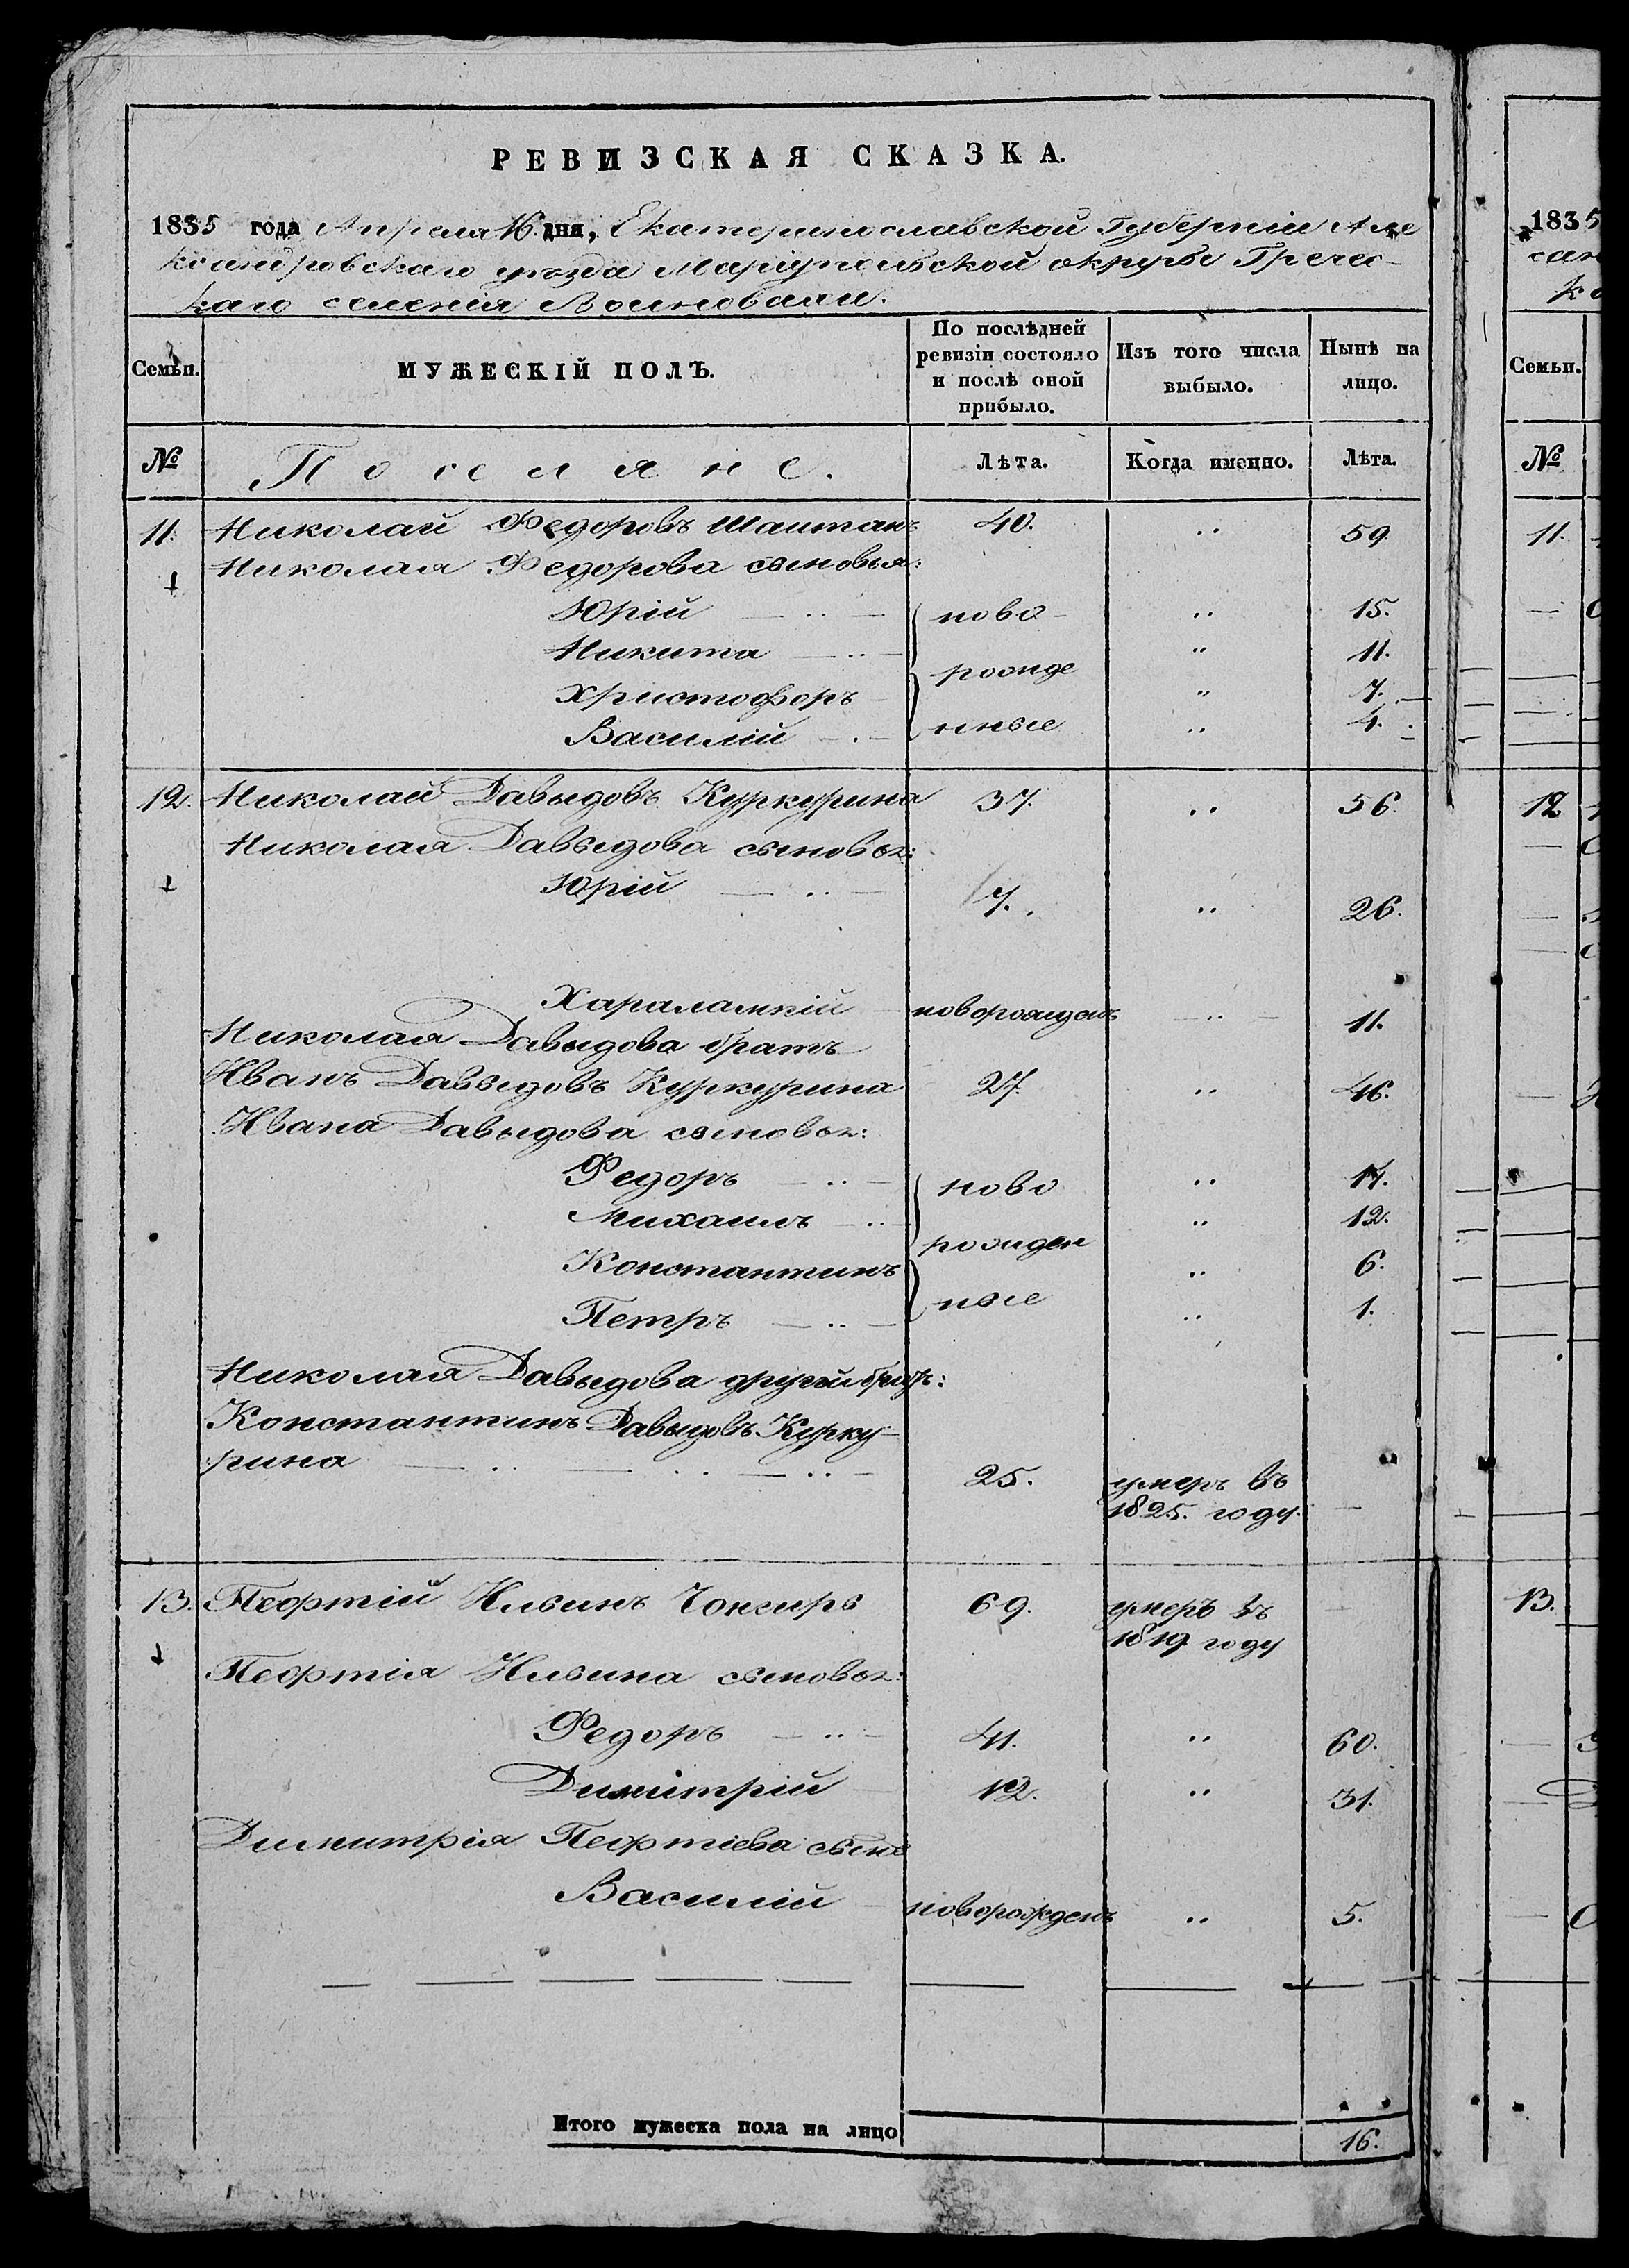 РЕВИЗСКАЯ СКАЗКА.
1835 года Апреля 16. дня, Екатеринославской Губернiи Але
ксандровскаго уезда Марiупольской округи Гречес-
каго селенiя
Семьи.
МУЖЕСКIЙ ПОЛЪ.
По послѣдней ревизiи состояло и послѣ оной прибыло.
Изъ того числа выбыло.
Нынѣ на лицо.
№ Поселяне. Лѣта. Когда именно. Лѣта.
11. Николай Федоровъ Шаитанъ 40. " 59.
Николая Федорова сыновья:
Юрiй — " — ново- " 15.
Никита — " — рожде " 11.
Христофоръ — " 7.
Василiй — нные " 4.
12. Николай Давыдовъ Куркурина 37. " 56.
Николая Давыдова сыновья:
Юрiй — " — 7. " 26.
Харалампiй — новорожденъ — " — 11.
Николая Давыдова братъ
Иванъ Давыдовъ Куркурина 27. " 46.
Ивана Давыдова сыновья:
Федоръ — " — ново " 17.
Михаилъ — " — рожден " 12.
Константинъ " 6.
Петръ — " — ные " 1.
Николая Давыдова другий братъ:
Константинъ Давыдовъ Курку-
рина — " — " — " — 25. умеръ въ
1825. году. —
13. Пефтiй Ильинъ 69. умеръ въ —
1819 году
Пефтiя Ильина сыновья:
Федоръ — " — 41. " 60.
Димитрiй — 12. " 31.
Димитрiя Пефтiева сынъ
Василiй — новорожденъ " 5.
Итого мужеска пола на лицо 16.
1835
Семьи.
№
11.
12
13.